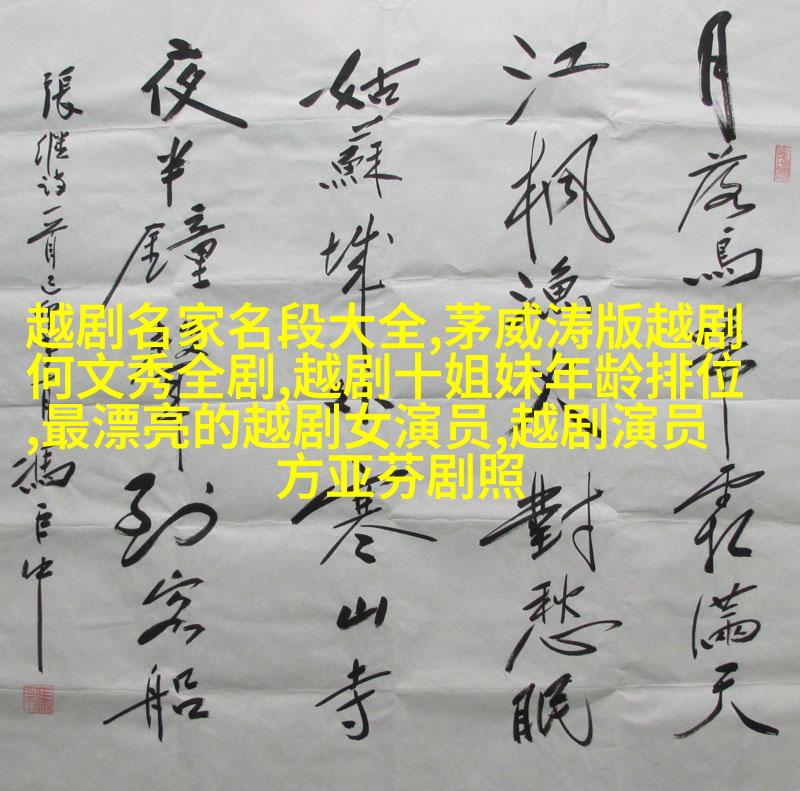 越剧名家名段大全,茅威涛版越剧
何文秀全剧,越剧十姐妹年龄排位
,最漂亮的越剧女演员,越剧演员
方亚芬剧照
月落烏啼霜滿天
江楓漁火對愁眠
姑蘇城外寒山寺
夜半鐘聲到客船
張继诗一首